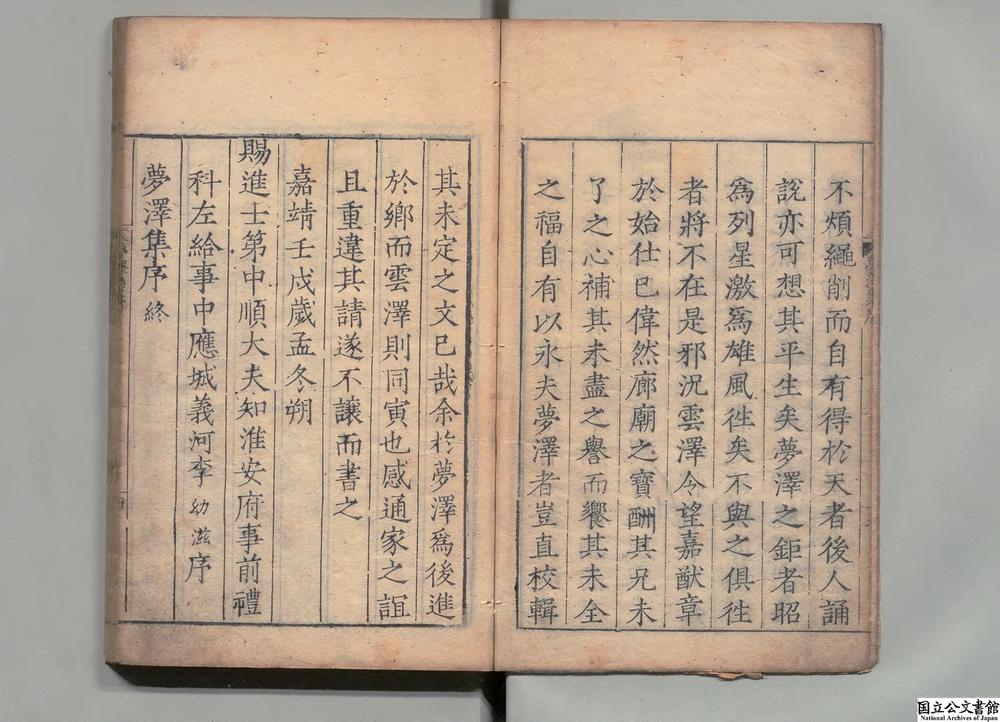 不煩繩削而自有得於天者後人誦
說亦可想其平生矣夢澤之鉅者昭
為列星激為雄風徃矣不與之俱徃
者將不在是邪況雲澤令望嘉猷章
於始仕已偉然廊廟之寶酬其兄未
了之心補其未盡之譽而饗其未全
之福自有以永夫夢澤者豈直校輯
其未定之文已哉余於夢澤為後進
於鄉而雲澤則同寅也感通家之誼
且重違其請遂不讓而書之
嘉靖壬戌歲孟冬朔
賜進士第中順大夫知淮安府事前禮
科左給事中應城義河李幼滋序
夢澤集序終
国立公文書館
National Archives of Japan